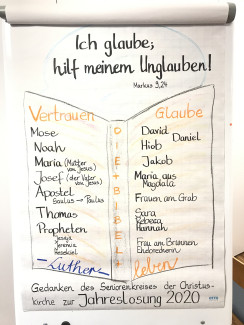 Ich glaube;
hilf meinem Unglauben!
Markus 9,24
Vertrauen
Mose
Noah
Maria (Mutter von Jesus)
Josef (der Vater von Jesus)
Apostel
Saulus → Paulus
Thomas
Propheten
Jesaja
Jeremia
Hesekiel
Luther
DIE + BIBEL
Glaube
David
Daniel
Hiob
Jakob
Maria aus
Magdala
Frauen am Grab
Sara
Rebecca
Hannah
Frau am Brunnen
Ehebrecherin
leben
Gedanken des Seniorenkreises der Christus-
kirche zur Jahreslosung 2020